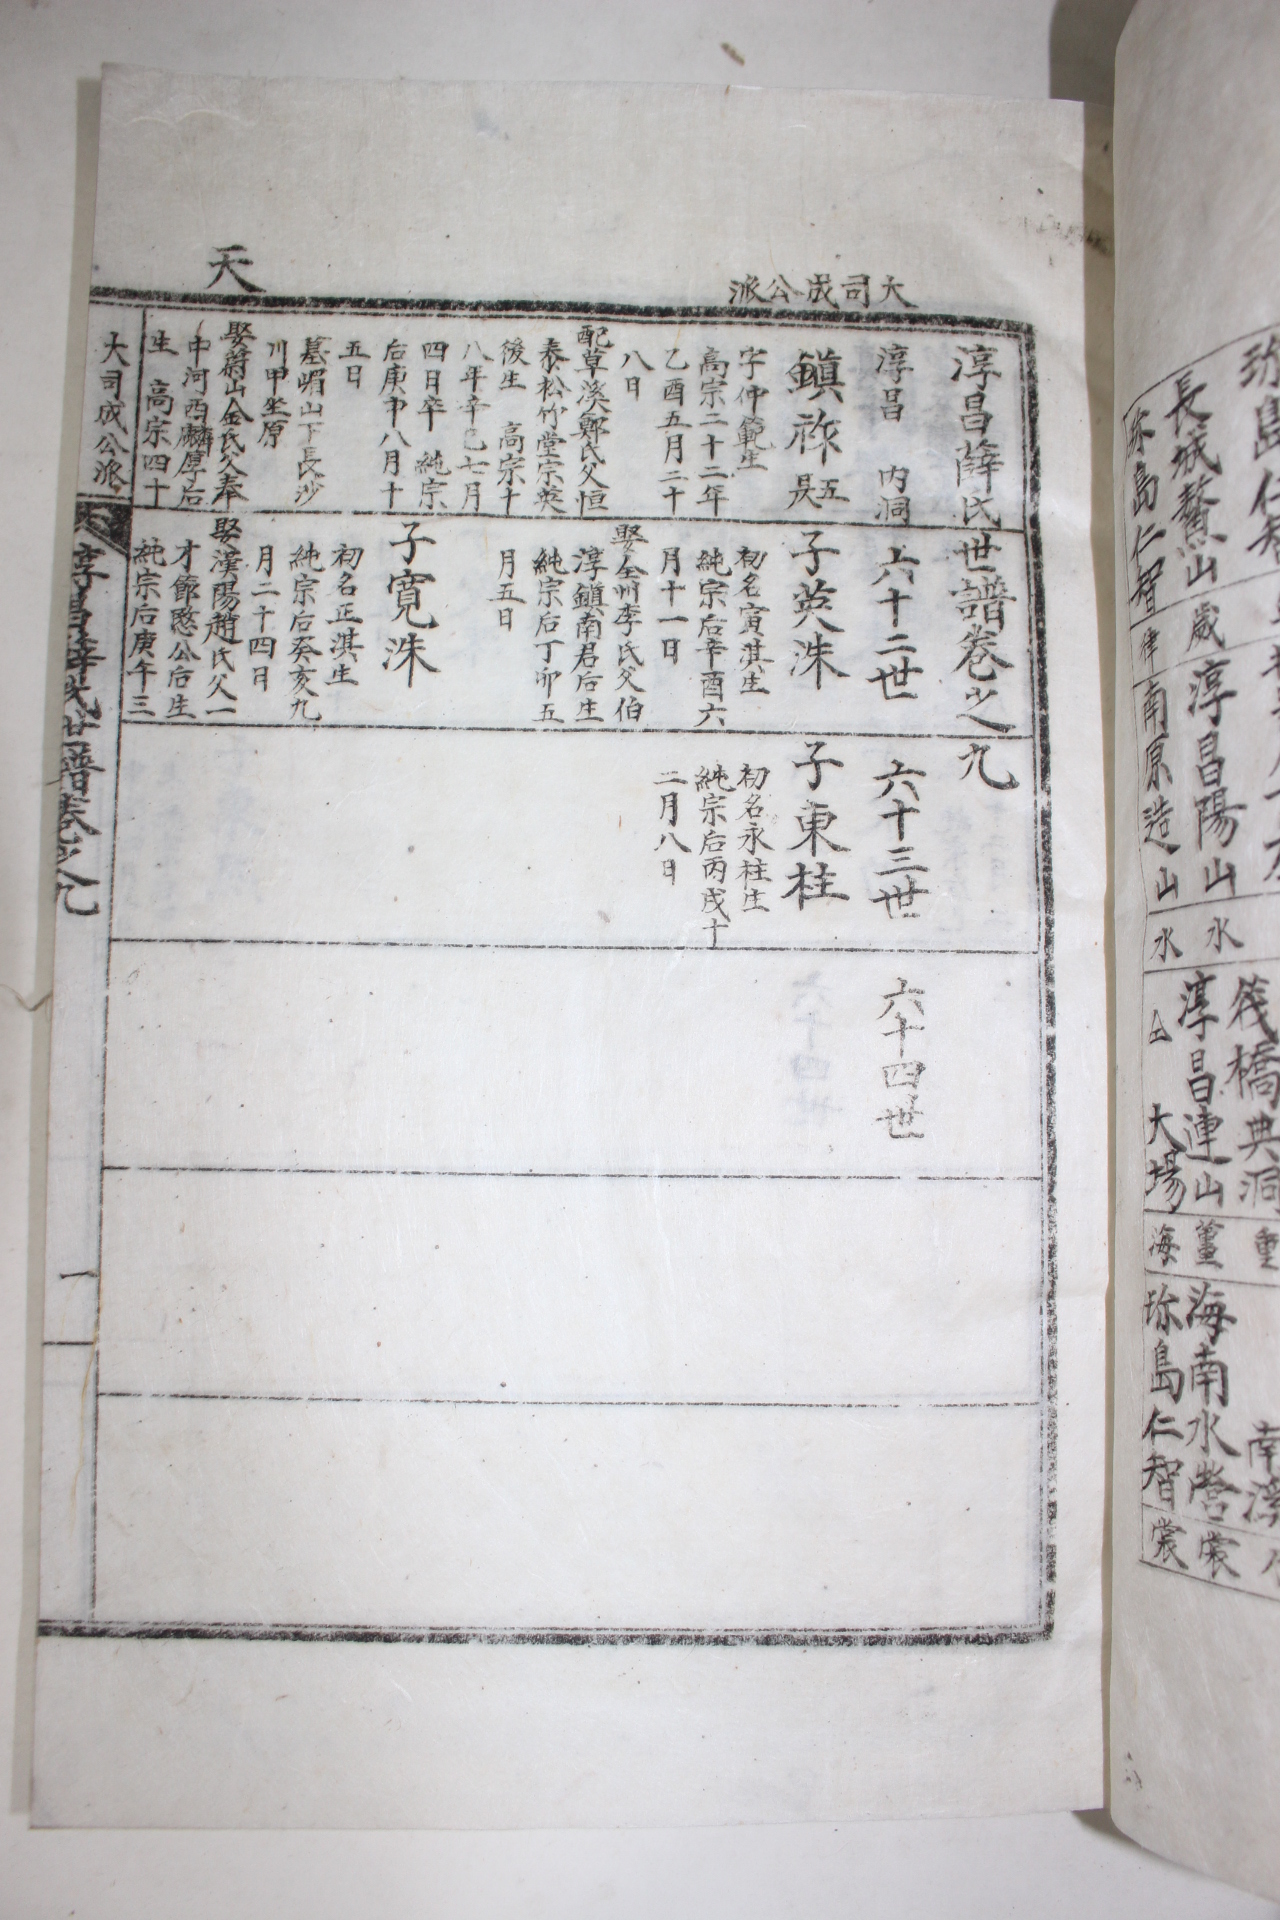 大司成公派
天
淳昌薛氏世譜卷之九
淳昌 内洞
六十二世
六十三世
六十四世
鎭祚
五
字仲範生
高宗二十二年
乙酉五月二十
八日
配草溪鄭氏父恒
泰松竹堂宗英
後生 高宗十
八年辛巳七月
四日卒 純宗
后庚申八月十
五日
墓嵋山下長沙
川甲坐原
娶蔚山金氏父奉
中河西麟厚后
生 高宗四十
子英洙
初名寅淇生
純宗后辛酉六
月十一日
娶全州李氏父伯
淳鎭南君后生
純宗后丁卯五
月五日
子寛洙
初名正淇生
純宗后癸亥九
月二十四日
娶漢陽趙氏父一
才節愍公后生
純宗后庚午三
子東柱
初名永柱生
純宗后丙戌十
二月八日
大司成公派
淳昌薛氏世譜卷之九
一
筏橋典洞
長城鰲山
歲
淳昌陽山
水
淳昌連山
海南水營
裳
珍島仁智
律
南原造山
水
大場
海
珍島仁智
裳